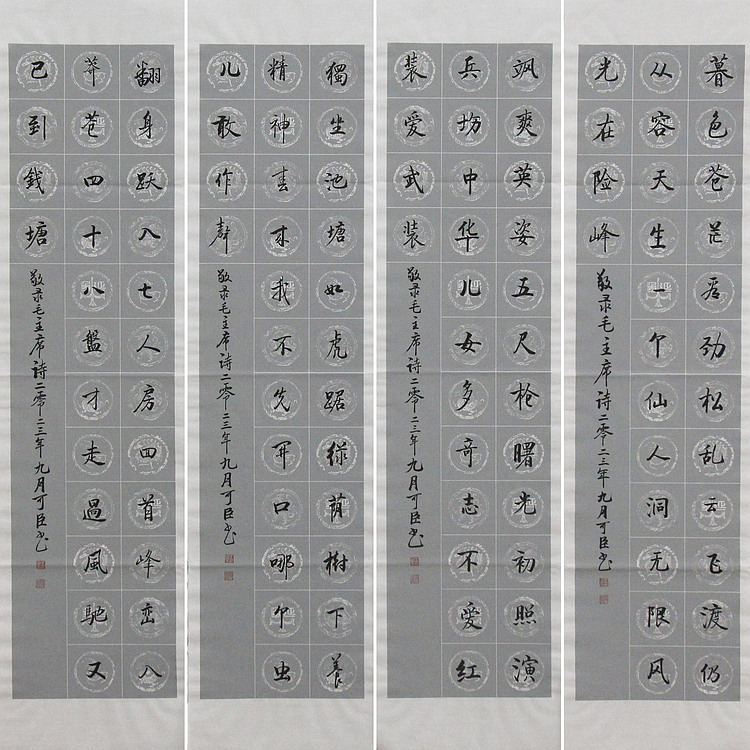 暮色苍茫看劲松乱云飞渡仍
从容天生一个仙人洞无限风
光在险峰
敬录毛主席诗二零二三年九月可臣书
飒爽英姿五尺枪曙光初照演
兵场中华儿女多奇志不爱红
装爱武装
敬录毛主席诗二零二三年九月可臣书
獨坐池塘如虎踞绿荫樹下養
精神春来我不先开口哪个虫
儿敢作聲
敬录毛主席诗二零二三年九月可臣书
翻身跃入七人房回首峰峦入
莽苍四十八盤才走過風馳又
已到錢塘
敬录毛主席诗二零二三年九月可臣书